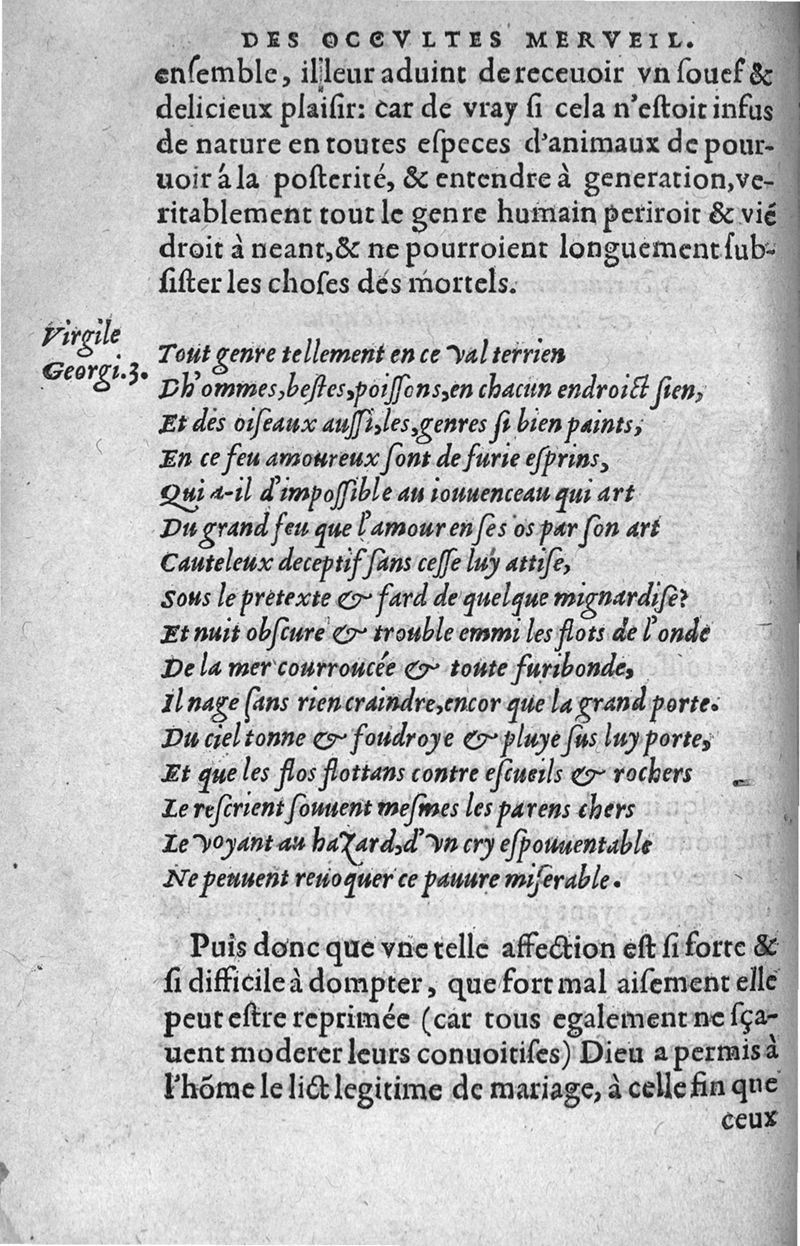 DES OCCVLTES MERVEIL.
enſemble, il leur aduint de receuoir vn ſouef &
delicieux plaiſir: car de vray ſi cela n'eſtoit infus
de nature en toutes eſpeces d'animaux de pour-
uoir á la poſterité, & entendre à generation, ve-
ritablement tout le genre humain periroit & viē
droit à neant, & ne pourroient longuement ſub-
ſiſter les choſes des mortels.
Virgile
Georgi. 3.
Tout genre tellement en ce val terrien
D'hommes, beſtes, poiſſons, en chacun endroict ſien,
Et des oiſeaux auſſi, les, genres ſi bien paints,
En ce feu amoureux ſont de furie eſprins,
Qui a-il d'impoſſible au iouuenceau qui art
Du grand feu que l'amour en ſes os par ſon art
Cauteleux deceptif ſans ceſſe luy attiſe,
Sous le pretexte & fard de quelque mignardiſe?
Et nuit obſcure & trouble emmi les flots de l'onde
De la mer courroucée & toute furibonde,
Il nage ſans rien craindre, encor que la grand porte.
Du ciel tonne & foudroye & pluye ſus luy porte,
Et que les flos flottans contre eſcueils & rochers
Le reſcrient ſouuent meſmes les parens chers
Le voyant au hazard, d'vn cry eſpouuentable
Ne peuuent reuoquer ce pauure miſerable.
Puis donc que vne telle affection eſt ſi forte &
ſi difficile à dompter, que fort mal aiſement elle
peut eſtre reprimée (car tous egalement ne ſça-
uent moderer leurs conuoitiſes) Dieu a permis à
l'hõme le lict legitime de mariage, à celle fin que
ceux